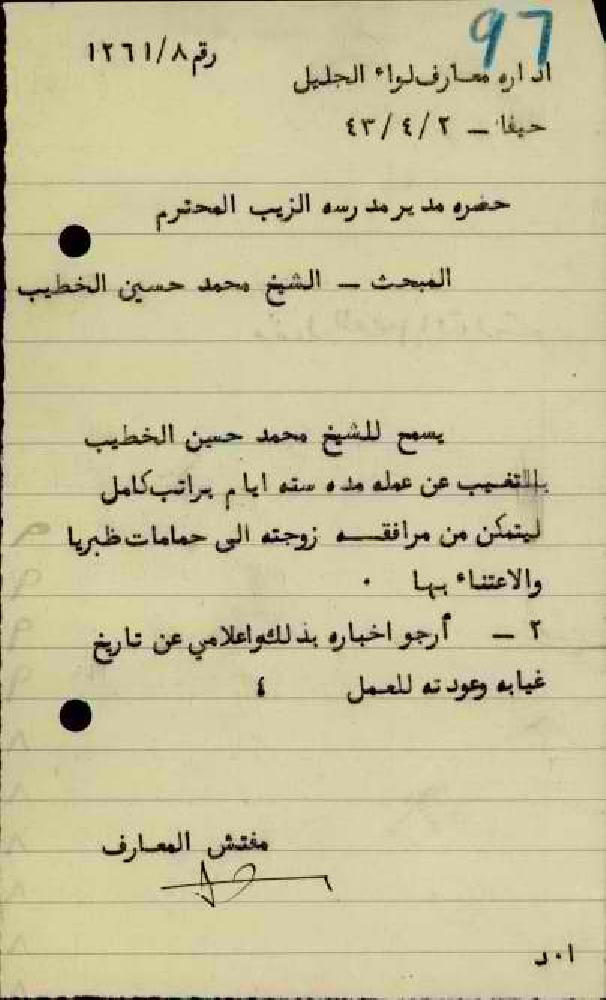 97
رقم ١٢٦١/٨
اداره معارف لواء الجليل
حيفا – ٤٣/٤/٢
حضره مدير مدرسه الزيب المحترم
المبحث – الشيخ محمد حسين الخطيب
يسمح للشيخ محمد حسين الخطيب
بالتغيب عن عمله مده سته ايام براتب كامل
ليتمكن من مرافقـــه زوجته الى حمامات طبريا
والاعتناء بها .
٢ – أرجو اخباره بذلك واعلامي عن تاريخ
غيابه وعودته للعمل ٤
مفتش المعارف
ا٠د